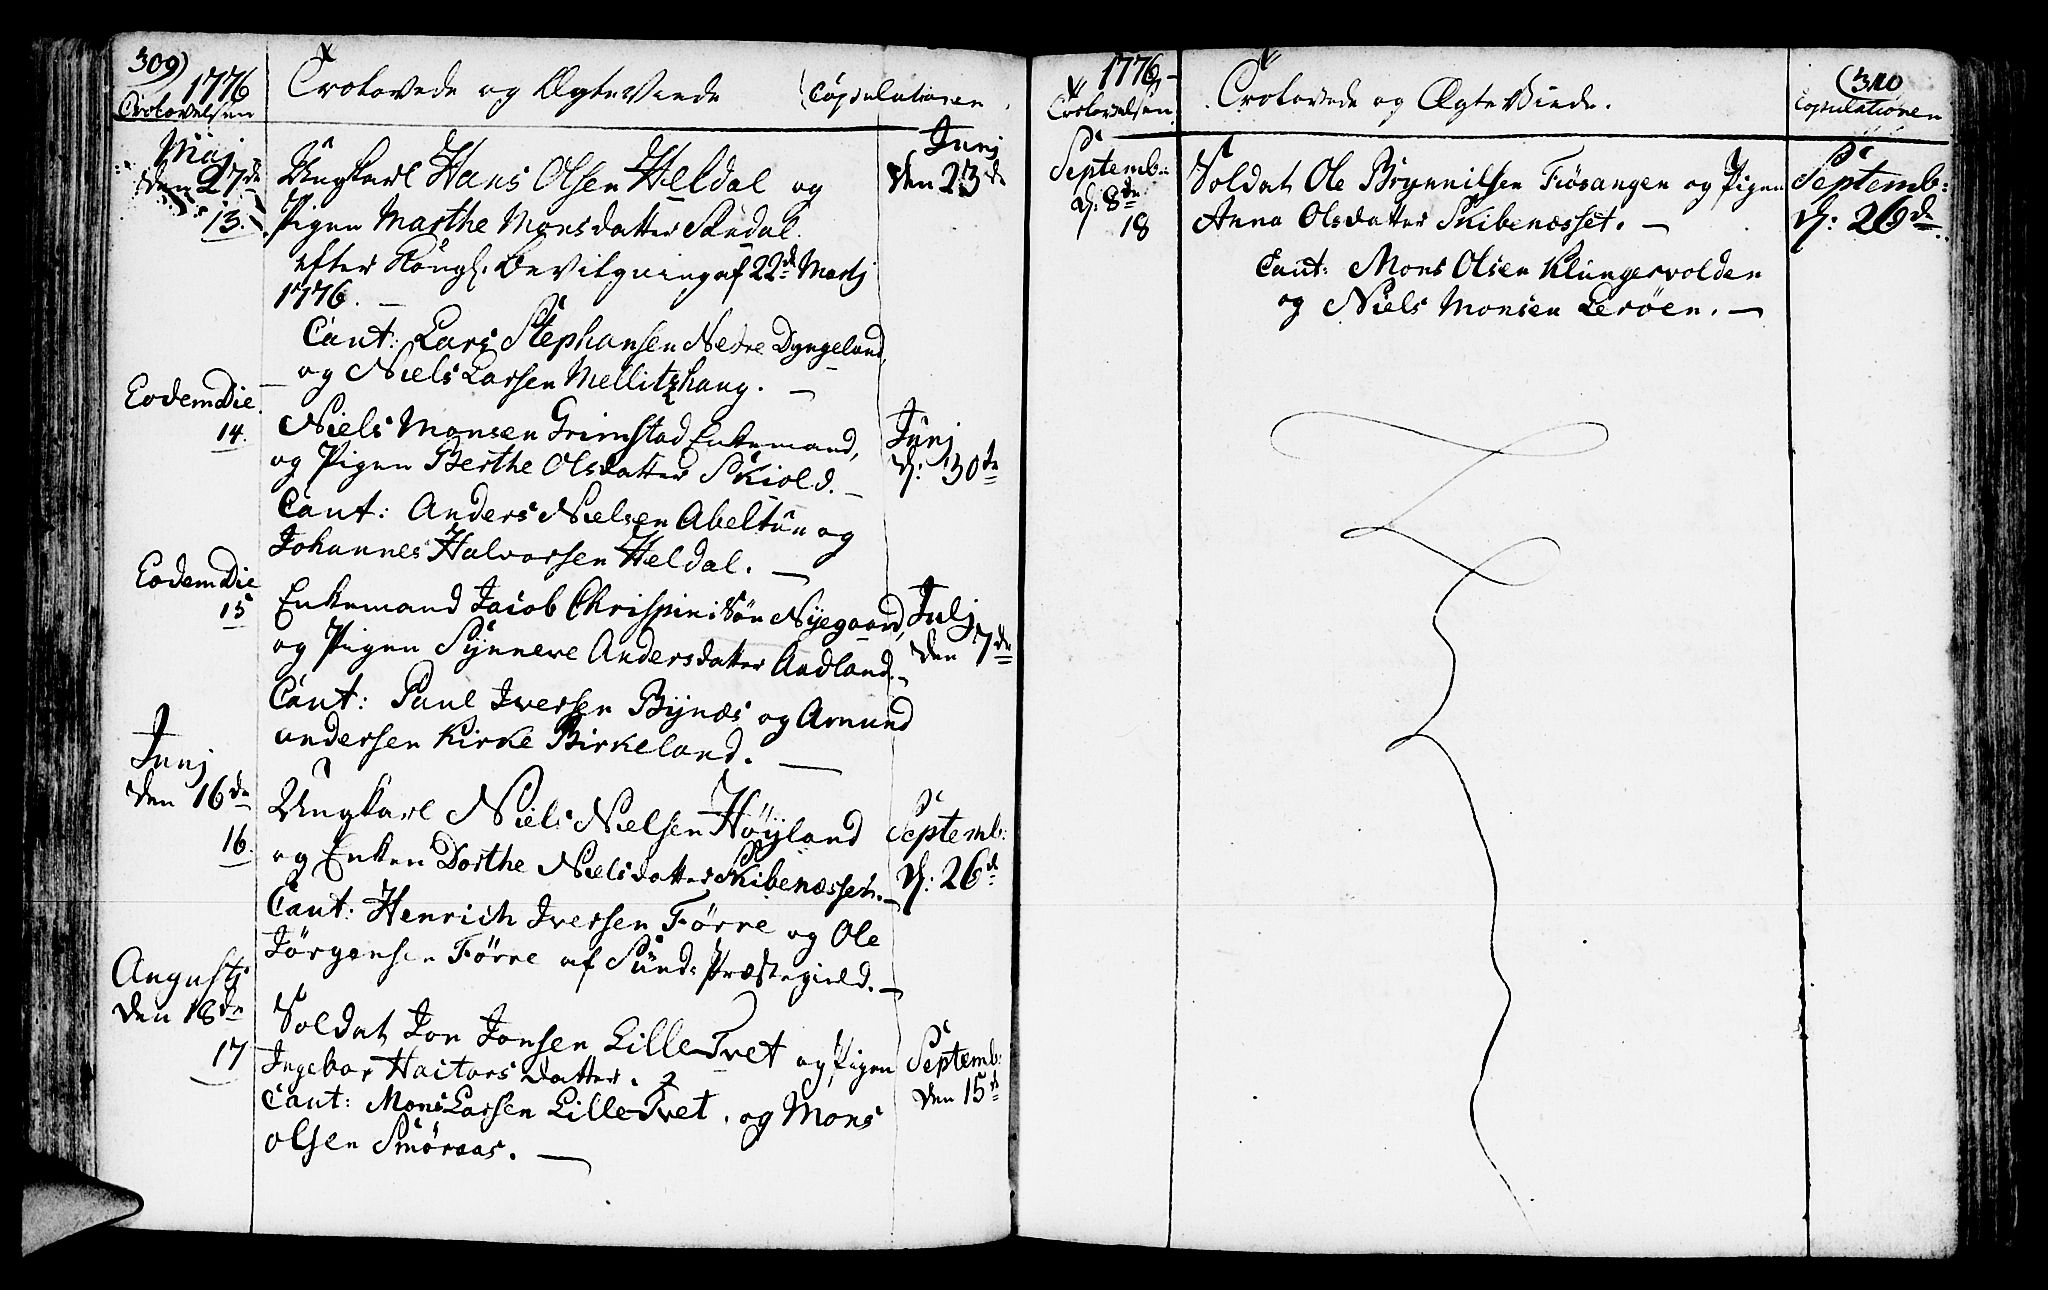 309)
1776
Trolovede og Ægteviede
Copulationen.
Trolovelsen
Maj
den 27de
13.
Ungkarl Hans Olsen Heldal og
Pigen Marthe Monsdatter Sædal.
efter Kongl. Bevilgning af 22de Martj
1776. —
Caut: Lars Stephansen Nedre Dyngeland
og Niels Larsen Mellitzhaug. —
Junj
den 23de
Eodem Die.
14.
Niels Monsen Grimstad Enkemand,
og Pigen Berthe Olsdatter Skiold. —
Caut: Anders Nielsen Abeltún og
Johannes Halvorsen Heldal. —
Junj
d: 30te
Eodem Die
15
Enkemand Jacob Chrispini Søn Nyegaard,
og Pigen Synneve Andersdatter Aadland. -
Caut: Paul Iversen Bynæs og Amund
andersen Kirke Birkeland. —
Julj
den 7de
Junj
den 16de
16.
Ungkarl Niels Nielsen Høyland
og Enken Dorthe Nielsdatter Skibenesset. —
Caut: Henrich Iversen Førre og Ole
Jørgensen Førre af Sund: Præstegield. —
Septemb:
d: 26de
Augustj
den 18de
17
Soldat Jon Jonsen Lille Tvet og Pigen
Ingebor Haitorsdatter.
Caut: Mons Larsen Lille Tvet, og Mons
olsen Smøraas. —
Septemb:
den 15de
1776 -
Trolovelsen.
Trolovede og Ægteviede.
(310
Copulationen
Septemb:
d: 8de
18
Soldat Ole Brynnilsen Fiøsangen og Pigen
Anna Olsdatter Skibenæsset. —
Caut: Mons Olsen Klungervolden
og Niels Monsen Lerøen. —
Septemb:
d: 26de